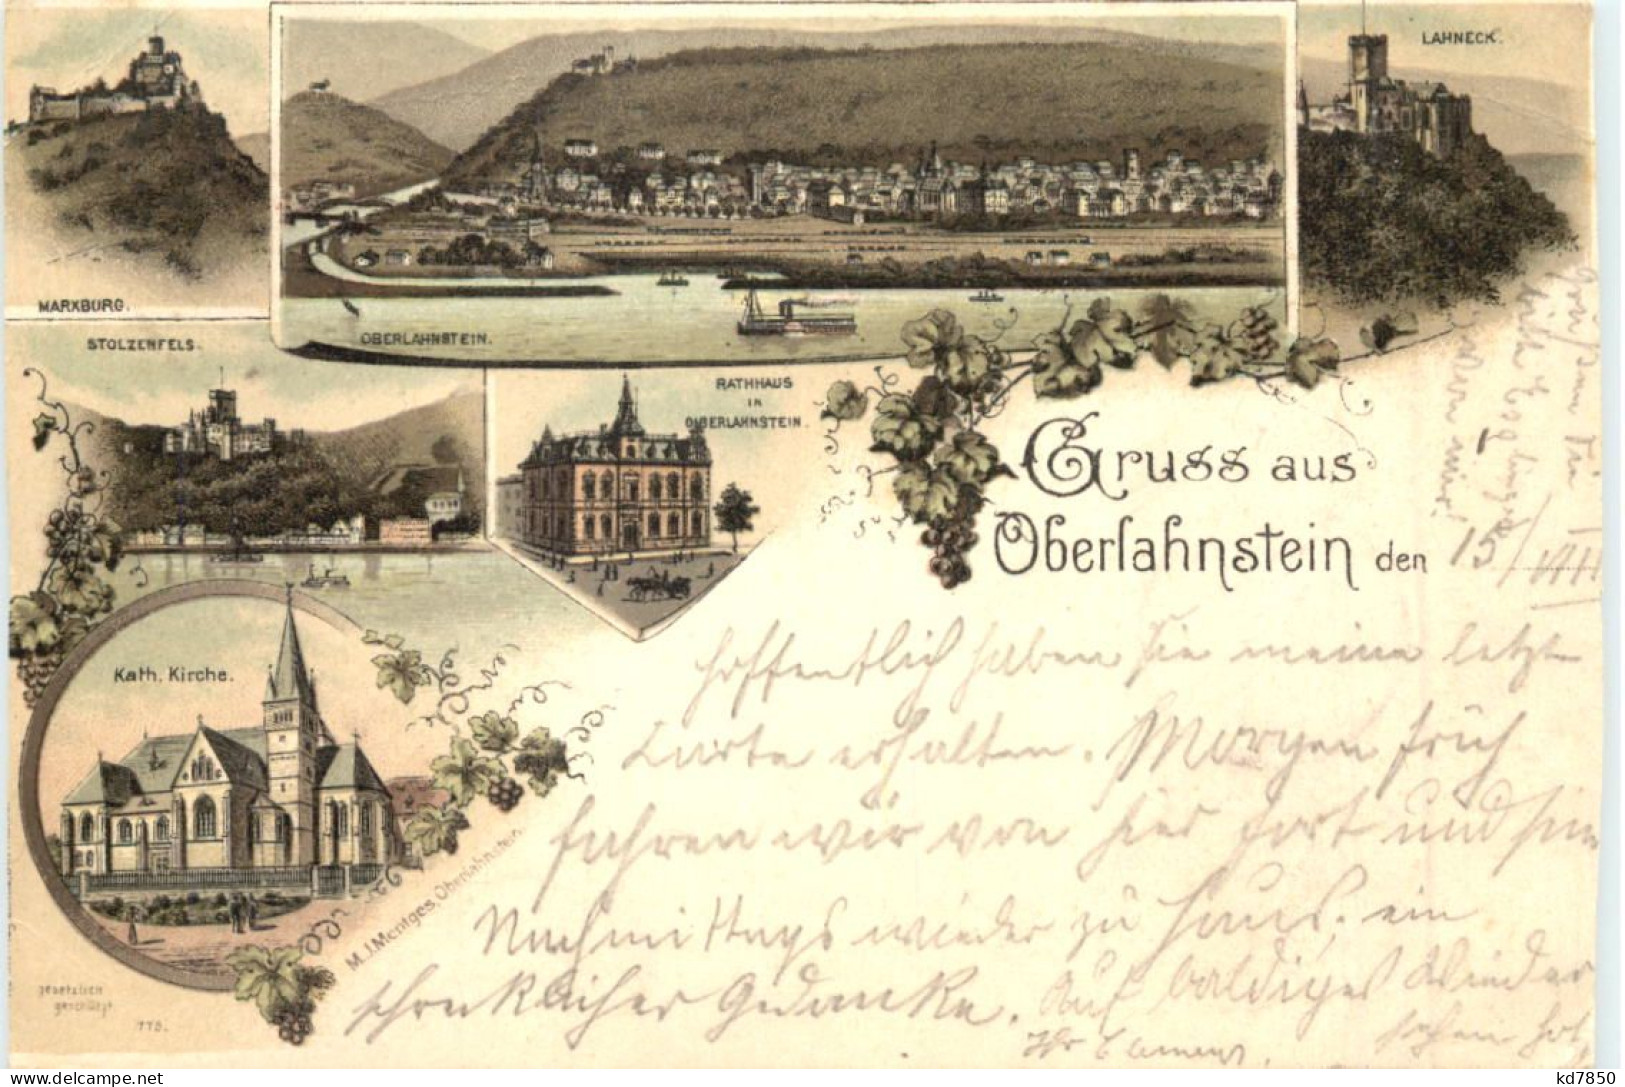 MARXBURG.
OBERLAHNSTEIN.
LAHNECK.
STOLZENFELS.
RATHHAUS
IN
OBERLAHNSTEIN.
Gruss aus
Oberlahnstein den 15/VIII
Kath. Kirche.
M. J. Mentges, Oberlahnstein.
gesetzlich
geschützt
Hoffentlich haben Sie meine letzte
Karte erhalten. Morgen früh
fahren wir von hier fort und sind
Nachmittags wieder zu Haus. ein
schrecklicher Gedanke. Auf baldiges Wieder
sehen
Ihr Clemens.
kd7850